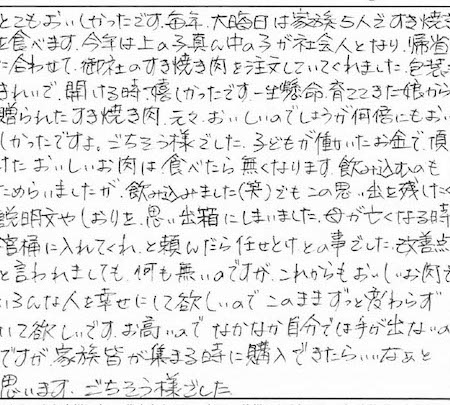 とてもおいしかったです。毎年、大晦日は家族5人ですき焼き
を食べます。今年は上の子真ん中の子が社会人となり、帰省
に合わせて、御社のすき焼き肉を注文していてくれました。包装も
きれいで、開ける時、嬉しかったです。一生懸命、育ててきた娘から
贈られたすき焼き肉、元々、おいしいのでしょうが何倍にもおい
しかったですよ。ごちそう様でした。子どもが働いたお金で、頂
けたおいしいお肉は、食べたら無くなります。飲み込むのも
ためらいましたが、飲み込みました(笑)でもこの思い出を残したく
説明文やしおりを、思い出箱にしまいました。母が亡くなる時
棺桶に入れてくれ、と頼んだら任せとけとの事でした。改善点
と言われましても、何も無いのですが、これからもおいしいお肉で
いろんな人を幸せにして欲しいので、このままずっと変わらず
いて欲しいです。お高いので、なかなか自分では手が出ないの
ですが、家族皆が集まる時に購入できたらいいなぁと
思います。ごちそう様でした